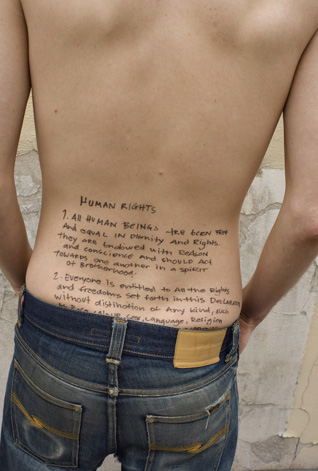 HUMAN RIGHTS
1. All HUMAN BEINGS ARE BORN FREE
And EQUAL IN Dignity And Rights.
they ARE Endowed with REASON
and conscience and should Act
TOWARDS one another in a spirit
of Brotherhood.
2. Everyone is entitled to All the Rights
and freedoms set forth in this Declaration
without distinction of Any Kind, such
Sex, Language, Religion